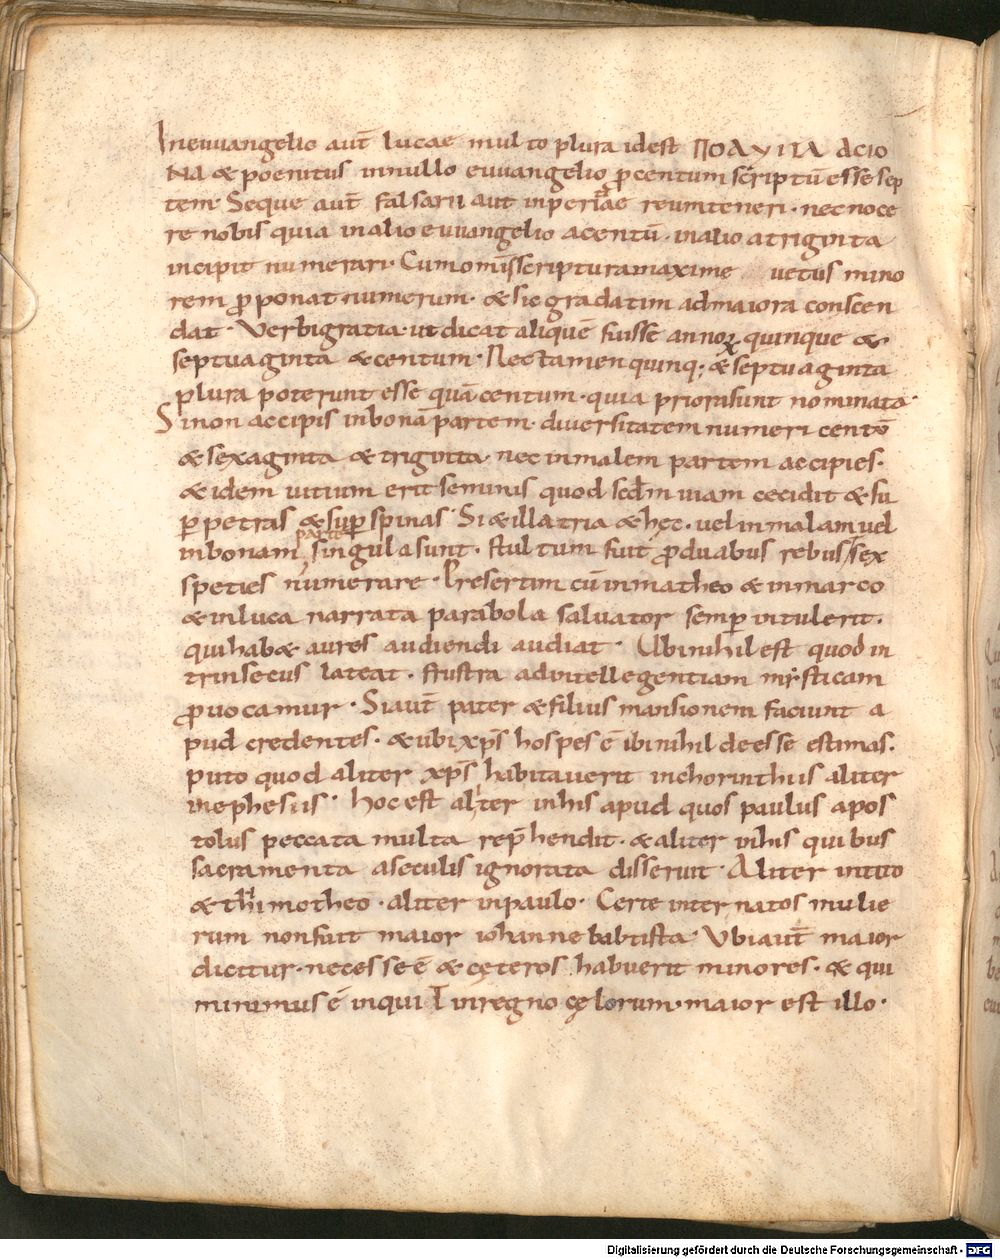 Ineuuangelio aut̄ lucae multo plura idest ΠOΛYΠΛ ΛCIO
NΛ & poenitus innullo euuangelio ꝓcentum scriptū esse sep
tem· Seque aut̄ falsarii aut inperitiae reum teneri· nec noce
re nobis quia inalio euuangelio acentū· inalio atriginta
incipit numerari· Cum omīs scriptura maxime uetus mino
rem ꝓponat numerum· & sic gradatim admaiora conscen
dat· Verbi gratia· ut dicat aliquē fuisse annoꝝ quinque &
septuaginta & centum· Nec tamen quinq; & septuaginta
plura poterunt esse quā centum· quia priora sunt nominata·
Si non accipis inbonā partem· diuersitatem numeri centū
& sexaginta & triginta· nec in malem partem accipies·
& idem uitium erit seminis quod scd̄m uiam cecidit & su
ꝑ petras & suꝑ spinas· Si & illa tria & hęc· uel in malam uel
inbonam parte singula sunt· stultum fuit ꝓduabus rebus sex
speties numerare· Presertim cū inmatheo & inmarco
& inluca narrata parabola saluator semꝑ intulerit·
qui hab& aures audiendi audiat· Ubi nihil est quod in
trinsecus lateat· frustra adintellegentiam mẏsticam
ꝓuocamur· Si aut̄ pater & filius mansionem faciunt a
pud credentes· & ubi xp̄s hospes ē ibi nihil deesse estimas·
puto quod aliter xp̄s habitauerit inchorinthiis aliter
inephesiis· hoc est aliter inhis apud quos paulus apos
tolus peccata multa rep̄hendit· & aliter inhis quibus
sacramenta aseculis ignorata disseruit· Aliter intito
& thimotheo· aliter inpaulo· Certe inter natos mulie
rum non fuit maior iohanne babtista· Vbi aut̄ maior
dicitur· necesse ē & cęteros habuerit minores· & qui
minimus ē inquit inregno cęlorum· maior est illo·
Digitalisierung gefördert durch die Deutsche Forschungsgemeinschaft - DFG